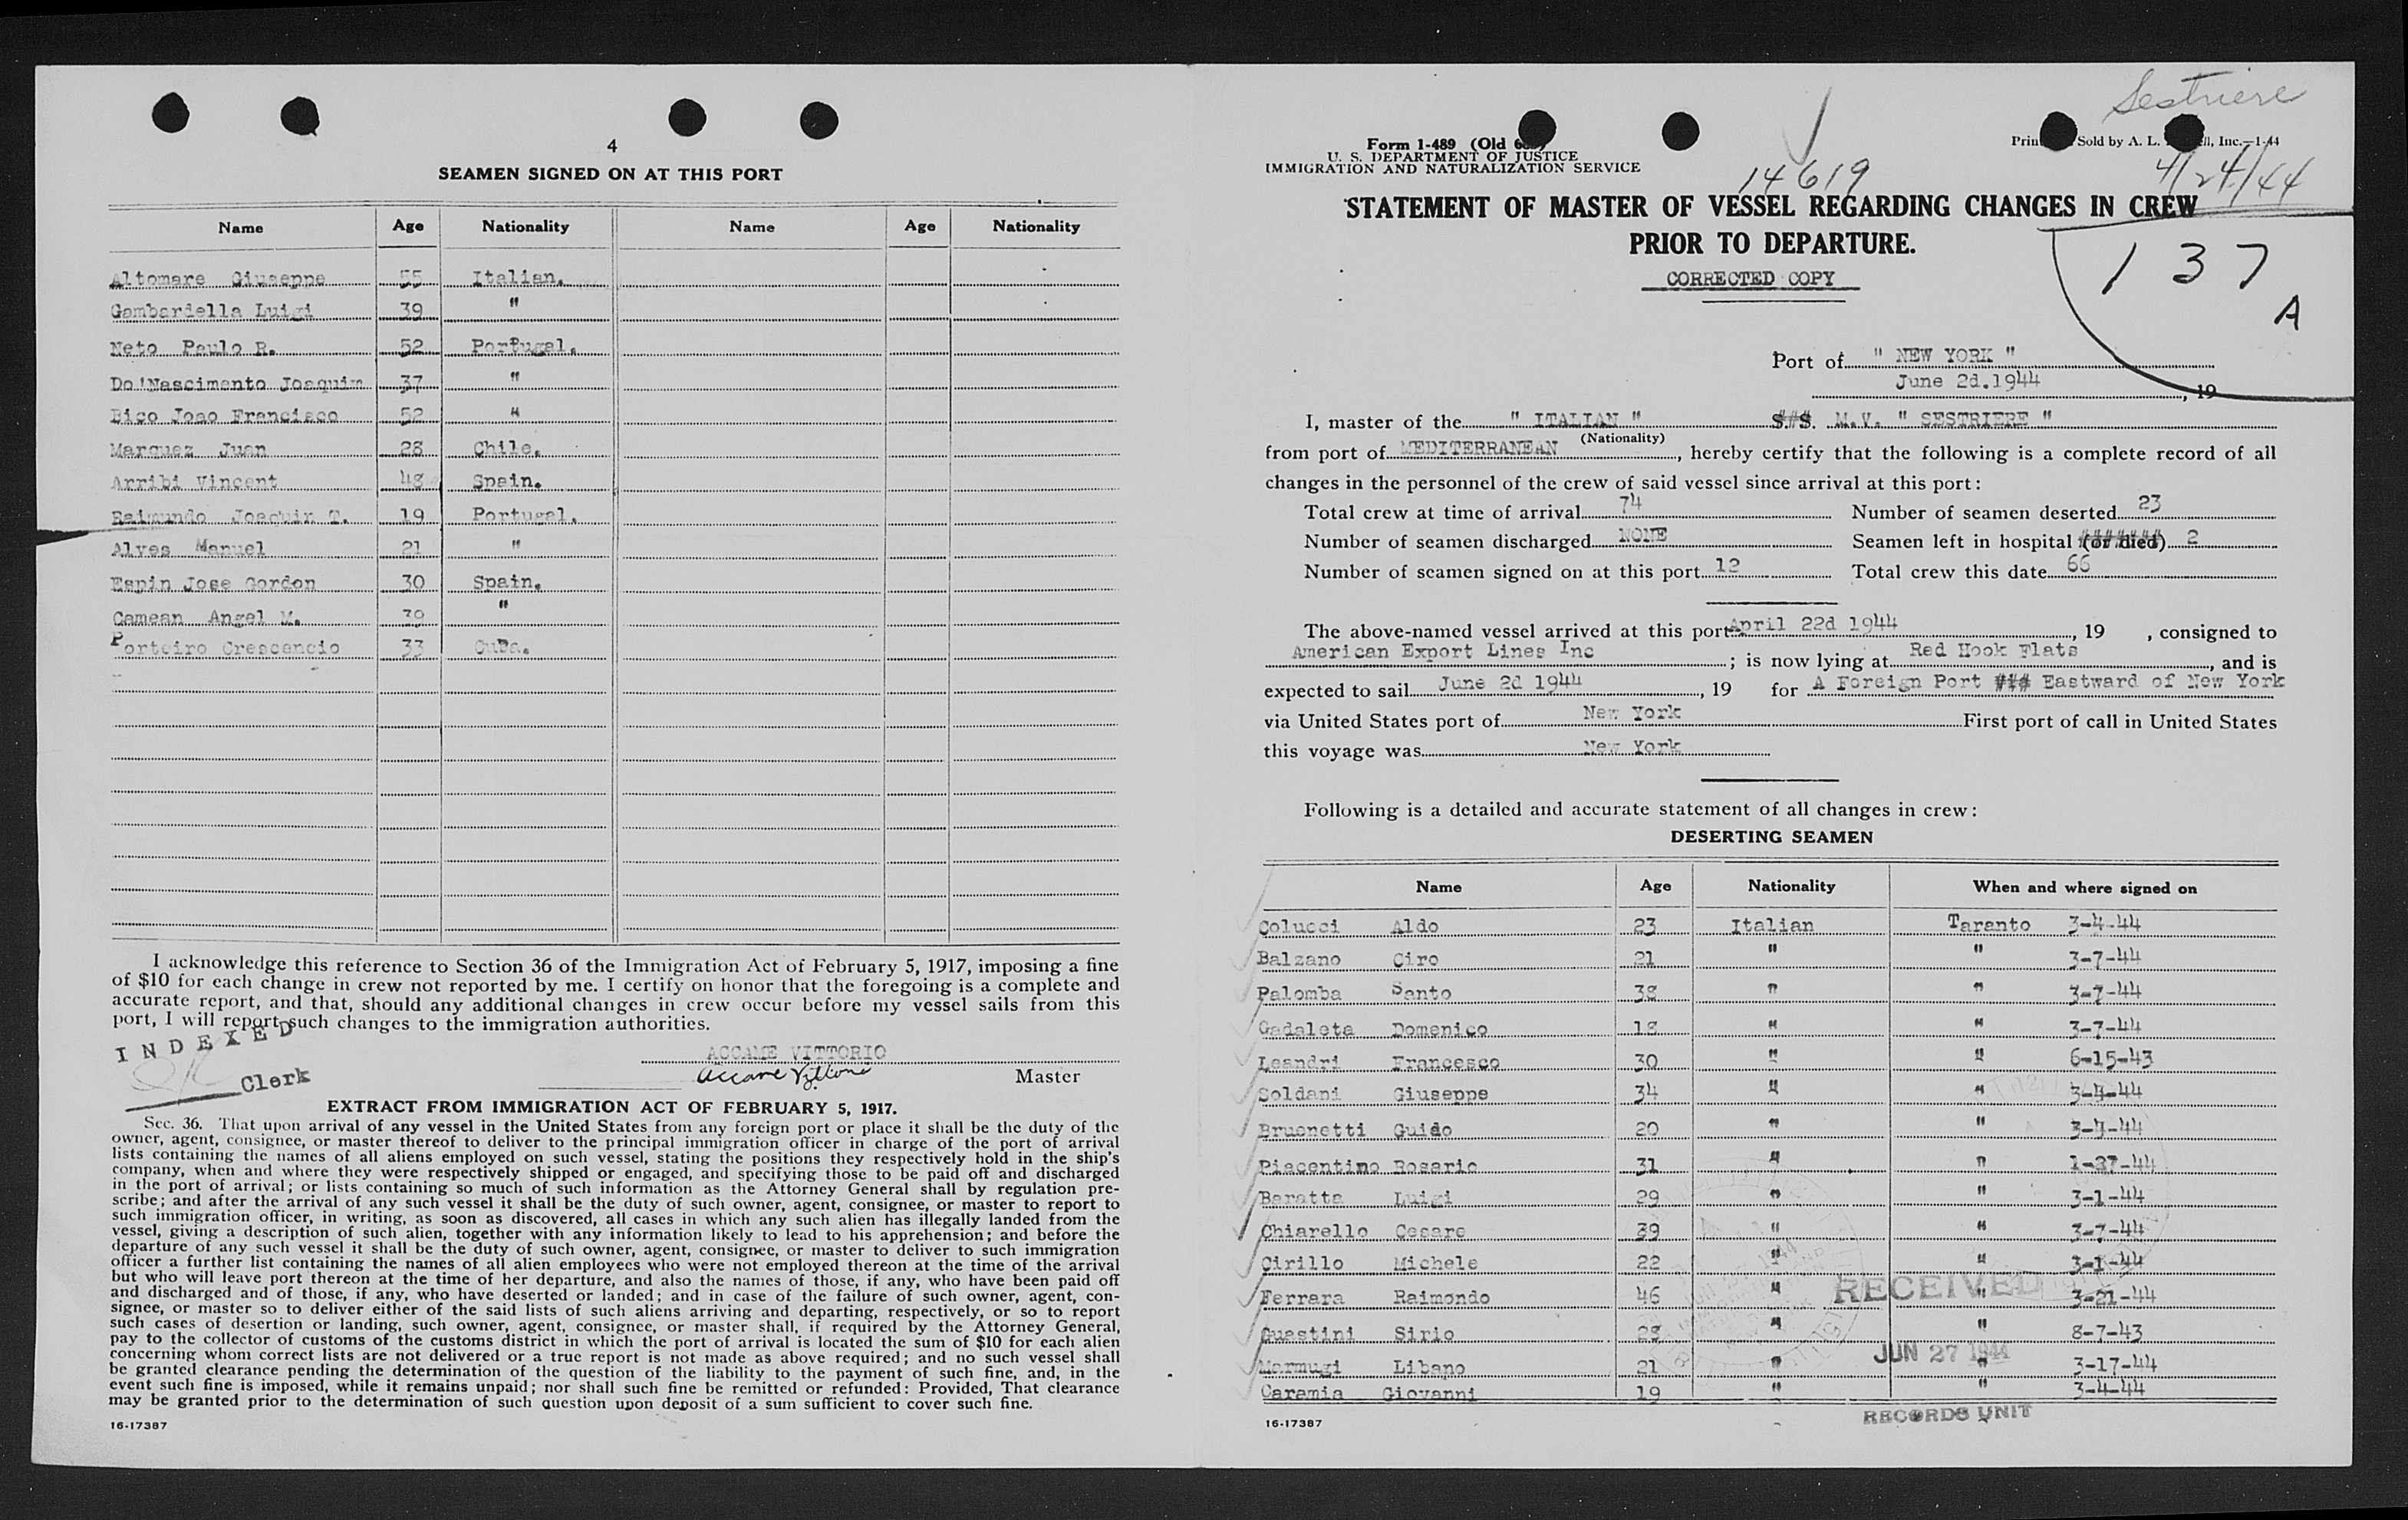 4
SEAMEN SIGNED ON AT THIS PORT
Name Age Nationality Name Age Nationality
Altomare Giuseppe 55 Italian.
Gambardella Luigi 39 "
Neto Paulo R. 52 Portugal.
Do!Nascimento Joaquim 37 "
Bico Joao Francisco 52 "
Marquez Juan 28 Chile.
Arribi Vincent 48 Spain.
Raimundo Joaquim T. 19 Portugal.
Alves Manuel 21 "
Espin Jose Gordon 30 Spain.
Camean Angel M. 39 "
Porteiro Crescencio 33 Cuba.
I acknowledge this reference to Section 36 of the Immigration Act of February 5, 1917, imposing a fine
of $10 for each change in crew not reported by me. I certify on honor that the foregoing is a complete and
accurate report, and that, should any additional changes in crew occur before my vessel sails from this
port, I will report such changes to the immigration authorities.
INDEXED
Clerk
ACCAME VITTORIO
Accame Vittorio
Master
EXTRACT FROM IMMIGRATION ACT OF FEBRUARY 5, 1917.
Sec. 36. That upon arrival of any vessel in the United States from any foreign port or place it shall be the duty of the
owner, agent, consignee, or master thereof to deliver to the principal immigration officer in charge of the port of arrival
lists containing the names of all aliens employed on such vessel, stating the positions they respectively hold in the ship's
company, when and where they were respectively shipped or engaged, and specifying those to be paid off and discharged
in the port of arrival; or lists containing so much of such information as the Attorney General shall by regulation pre-
scribe; and after the arrival of any such vessel it shall be the duty of such owner, agent, consignee, or master to report to
such immigration officer, in writing, as soon as discovered, all cases in which any such alien has illegally landed from the
vessel, giving a description of such alien, together with any information likely to lead to his apprehension; and before the
departure of any such vessel it shall be the duty of such owner, agent, consignee, or master to deliver to such immigration
officer a further list containing the names of all alien employees who were not employed thereon at the time of the arrival
but who will leave port thereon at the time of her departure, and also the names of those, if any, who have been paid off
and discharged and of those, if any, who have deserted or landed; and in case of the failure of such owner, agent, con-
signee, or master so to deliver either of the said lists of such aliens arriving and departing, respectively, or so to report
such cases of desertion or landing, such owner, agent, consignee, or master shall, if required by the Attorney General,
pay to the collector of customs of the customs district in which the port of arrival is located the sum of $10 for each alien
concerning whom correct lists are not delivered or a true report is not made as above required; and no such vessel shall
be granted clearance pending the determination of the question of the liability to the payment of such fine, and, in the
event such fine is imposed, while it remains unpaid; nor shall such fine be remitted or refunded: Provided, That clearance
may be granted prior to the determination of such question upon deposit of a sum sufficient to cover such fine.
16-17387
Sestriere
Form I-489 (Old
U. S. DEPARTMENT OF JUSTICE
IMMIGRATION AND NATURALIZATION SERVICE
Sold by A. L. Inc.—1-44
14619
4/24/44
STATEMENT OF MASTER OF VESSEL REGARDING CHANGES IN CREW
PRIOR TO DEPARTURE.
CORRECTED COPY
137
A
Port of " NEW YORK "
June 2d.1944, 19
I, master of the " ITALIAN " S.#S. M.V. " SESTRIERE "
(Nationality)
from port of MEDITERRANEAN, hereby certify that the following is a complete record of all
changes in the personnel of the crew of said vessel since arrival at this port:
Total crew at time of arrival 74 Number of seamen deserted 23
Number of seamen discharged NONE Seamen left in hospital (or died) 2
Number of seamen signed on at this port 12 Total crew this date 66
The above-named vessel arrived at this port April 22d 1944, 19 , consigned to
American Export Lines Inc; is now lying at Red Hook Flats, and is
expected to sail June 2d 1944, 19 for A Foreign Port ### Eastward of New York
via United States port of New York First port of call in United States
this voyage was New York
Following is a detailed and accurate statement of all changes in crew:
DESERTING SEAMEN
Name Age Nationality When and where signed on
Colucci Aldo 23 Italian Taranto 3-4-44
Balzano Ciro 21 " " 3-7-44
Palomba Santo 38 " " 3-7-44
Gadaleta Domenico 18 " " 3-7-44
Leandri Francesco 30 " " 6-15-43
Soldani Giuseppe 34 " " 3-4-44
Brugnetti Guido 20 " " 3-4-44
Piacentino Rosario 31 " " 1-27-44
Baratta Luigi 29 " " 3-1-44
Chiarello Cesare 39 " " 3-7-44
Cirillo Michele 22 " " 3-1-44
Ferrara Raimondo 46 " " 3-21-44
Guastini Sirio 28 " " 8-7-43
Marmugi Libano 21 " " 3-17-44
Caramia Giovanni 19 " " 3-4-44
RECEIVED
JUN 27 1944
RECORDS UNIT
16-17387